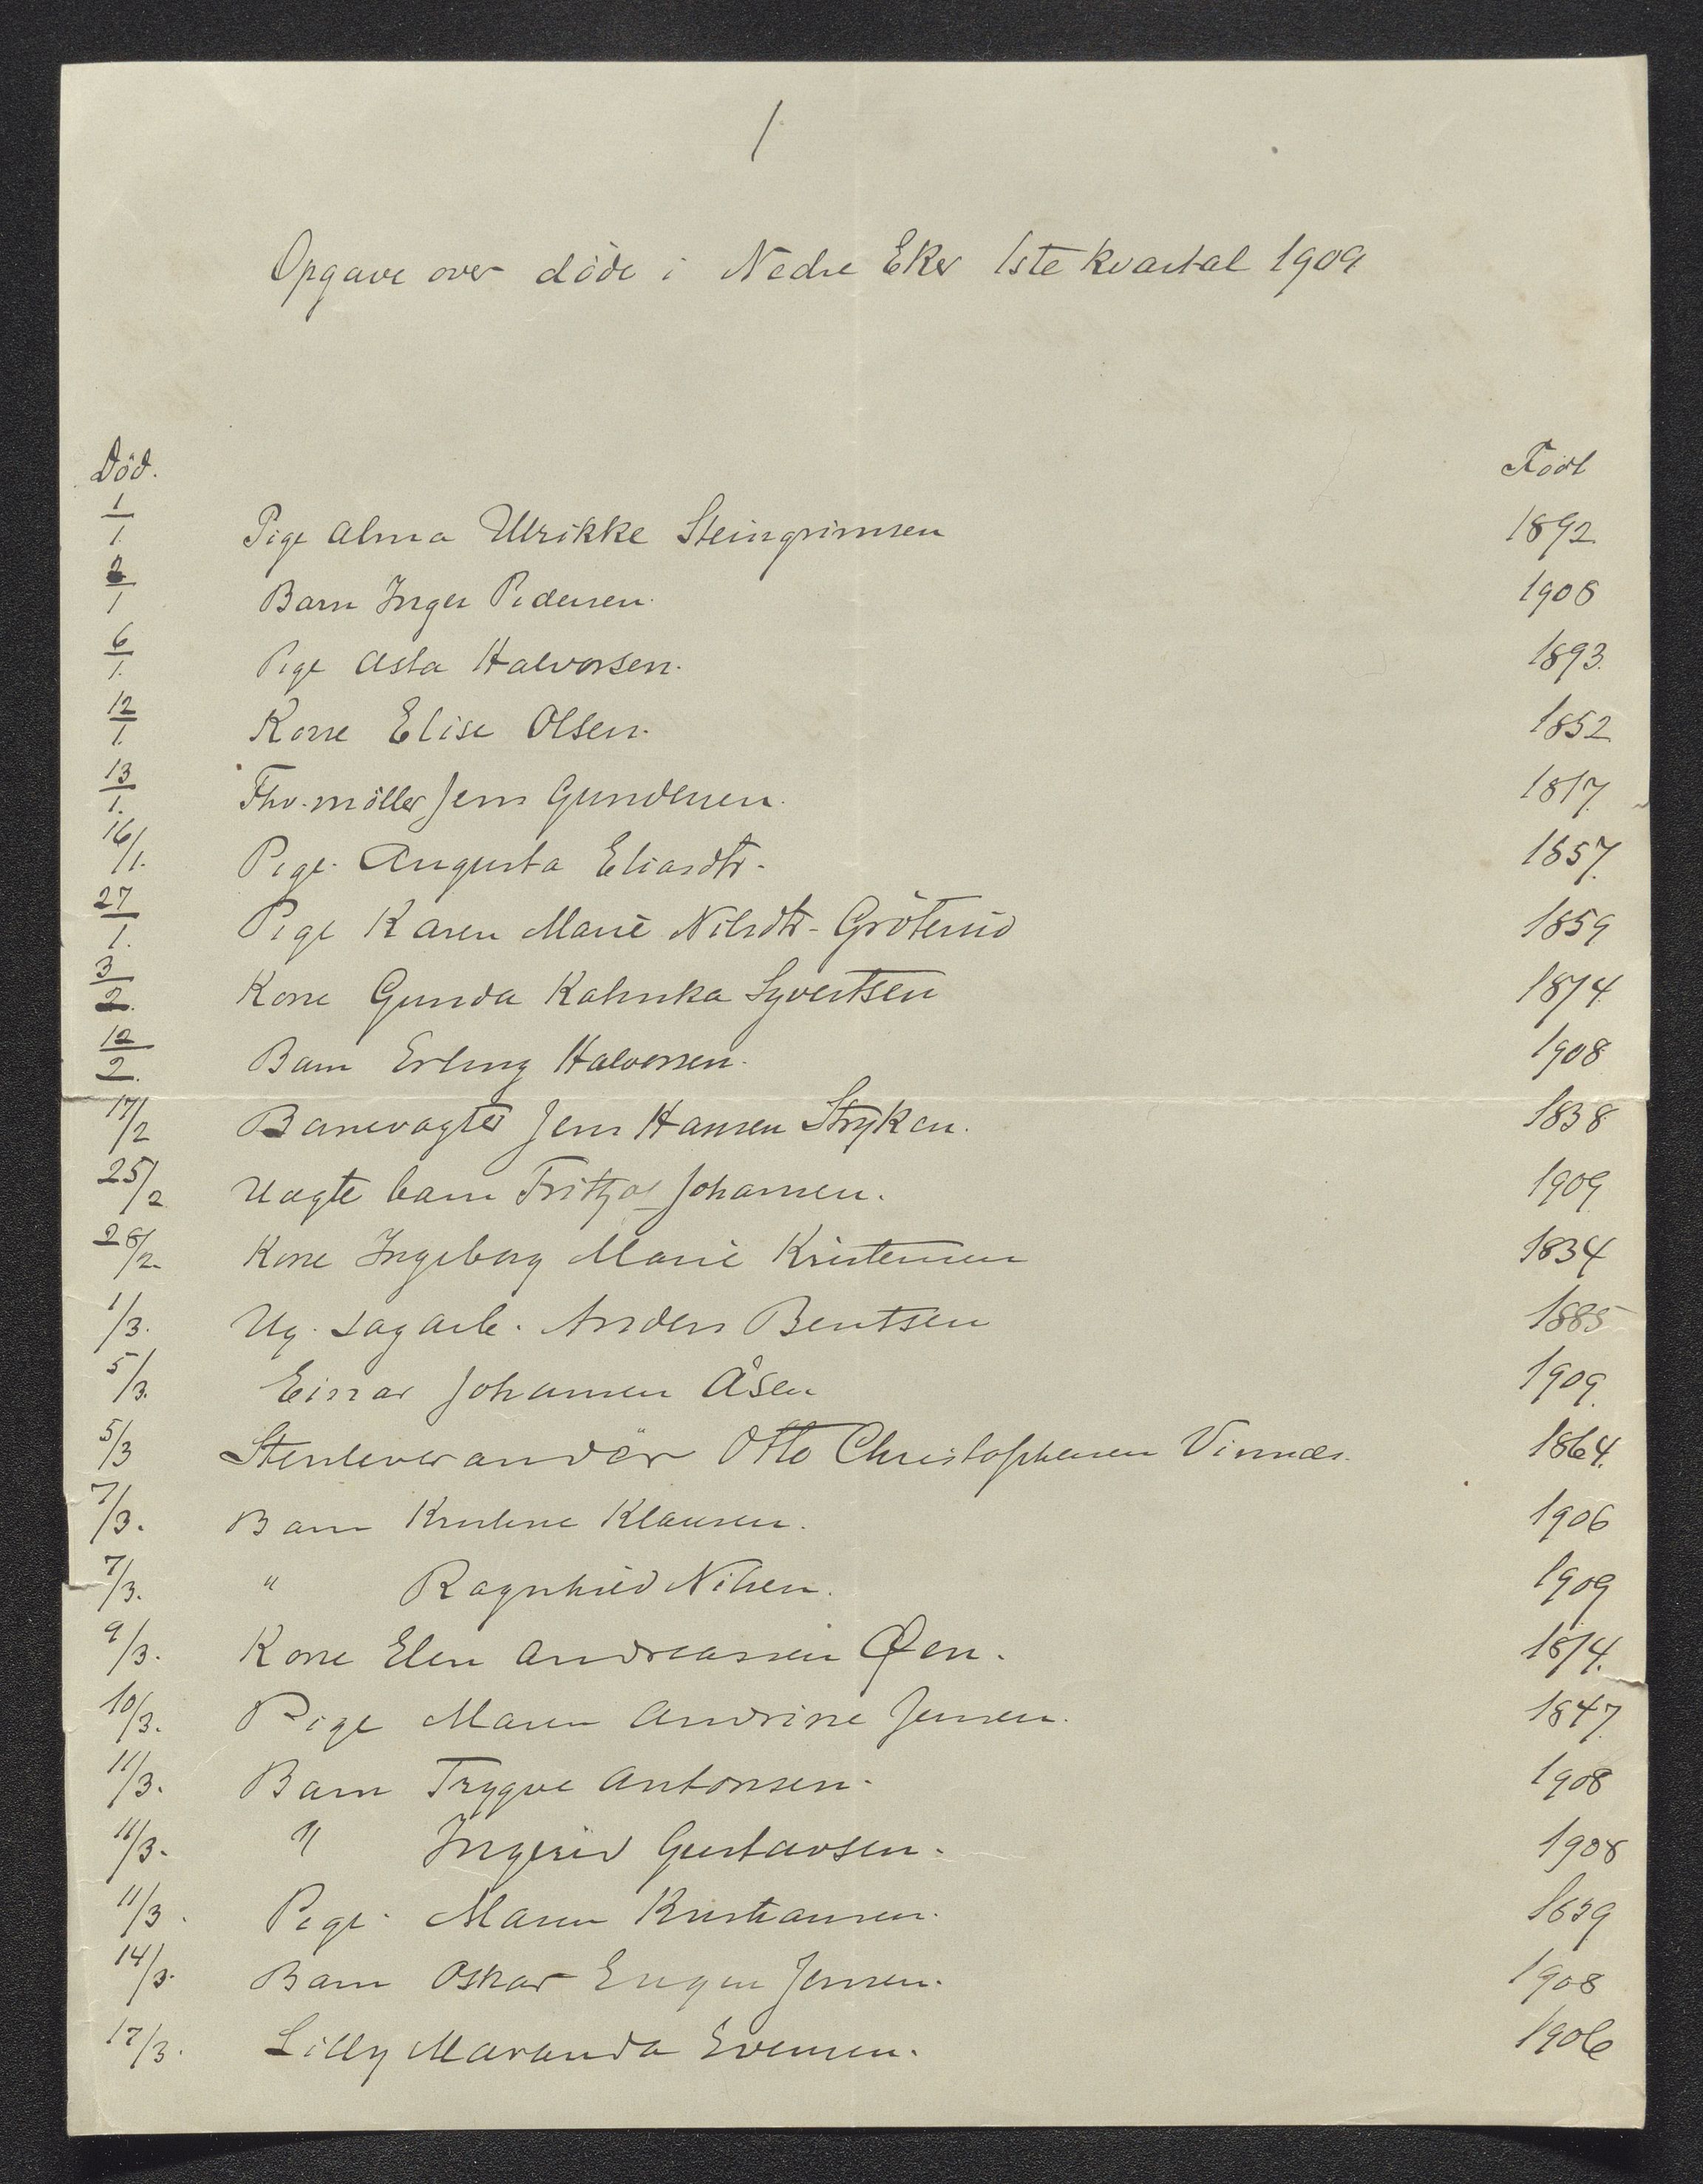 1
Opgave over døde i Nedre Eker 1ste kvartal 1909
Död. Födt
1/1. Pige Alma Ulrikke Steingrimsen 1892
2/1 Barn Inger Pedersen. 1908
6/1. Pige Asta Halvorsen. 1893.
12/1. Kone Elise Olsen. 1852
13/1. Fhv. möller Jens Gundersen. 1817
16/1. Pige Augusta Eliasdtr. 1857.
27/1. Pige Karen Marie Nilsdtr. Gröterud 1859
3/2. Kone Gunda Kahnka Syvertsen 1874
12/2. Barn Erling Halvorsen. 1908
17/2 Banevogter Jens Hansen Stryken. 1838
25/2 Uægte barn Fritjof Johansen. 1909
28/2. Kone Ingeborg Marie Kristensen 1834
1/3. Ug. sagarb. Anders Bentsen 1885
5/3. Einar Johansen Åsen 1909.
5/3 Stenleverandör Otto Christophersen Vinnæs. 1864.
7/3. Barn Klausen. 1906
7/3. " Ragnhild Nilsen. 1909
9/3. Kone Elen Andreassen Øen. 1874.
10/3. Pige Maren Andrine Jensen. 1847
11/3. Barn Trygve Antonsen. 1908
11/3. " Ingerid Gustavsen. 1908
11/3. Pige Maren Kristiansen. 1839
14/3. Barn Oskar Eugen Jensen. 1908
17/3. Lilly Maranda Evensen. 1906